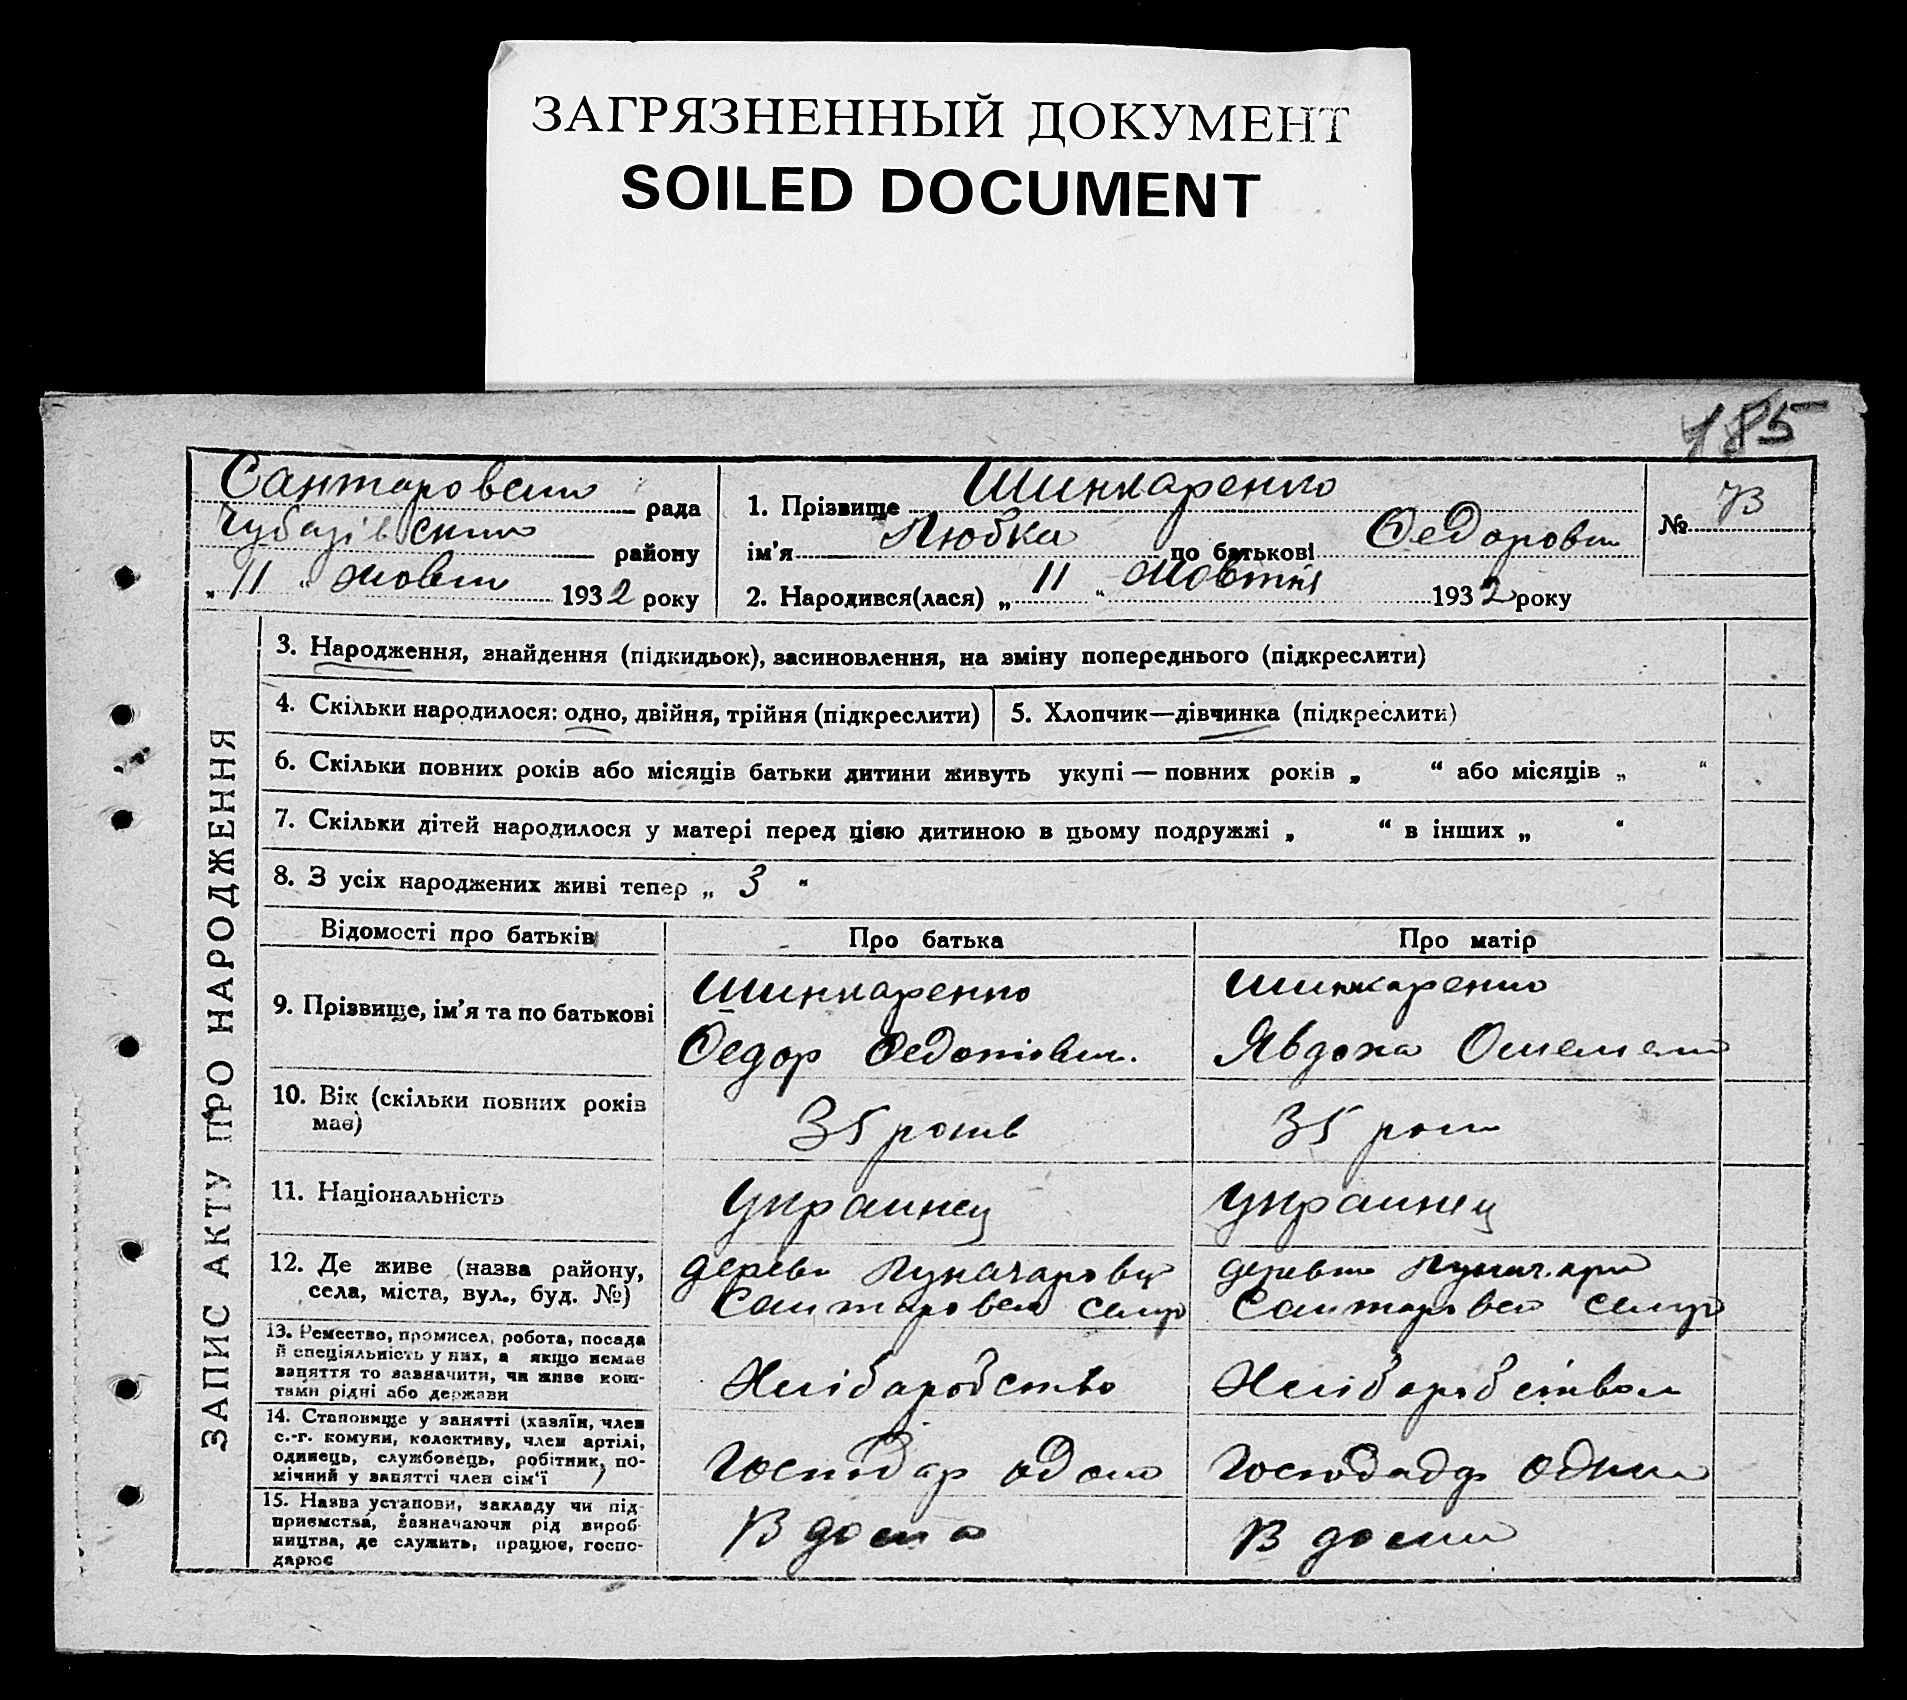 ЗАГРЯЗНЕННЫЙ ДОКУМЕНТ
SOILED DOCUMENT
485
рада
району
„ 11 “ 1932 року
1. Прізвище Шинкаренко
ім'я Любка по батькові
2. Народився(лася) „ 11 “ Жовтня 1932 року
№
ЗАПИС АКТУ ПРО НАРОДЖЕННЯ
3. Народження, знайдення (підкидьок), засиновлення, на зміну попереднього (підкреслити)
4. Скільки народилося: одно, двійня, трійня (підкреслити)
5. Хлопчик—дівчинка (підкреслити)
6. Скільки повних років або місяців батьки дитини живуть укупі — повних років „ “ або місяців „ “
7. Скільки дітей народилося у матері перед цією дитиною в цьому подружжі „ “ в інших „ “
8. З усіх народжених живі тепер „ 3 “
Відомості про батьків
Про батька
Про матір
9. Прізвище, ім'я та по батькові
Шинкаренко
Федор
Шинкаренко
Явдоха
10. Вік (скільки повних років
має)
35 років
35
11. Національність
Украинец
Украинец
12. Де живе (назва району,
села, міста, вул., буд. №)
13. Ремество, промисел, робота, посада
й спеціяльність у них, а якщо немає
заняття то зазначити, чи живе кош-
тами рідні або держави
Хлібаробство
14. Становище у занятті (хазяїн, член
с.-г. комуни, колективу, член артілі,
одинець, службовець, робітник, по-
мічний у занятті член сім'ї )
Господар
15. Назва установи, закладу чи під-
приємства, зазначаючи рід вироб-
ництва, де служить, працює, госпо-
дарює
В дома
В